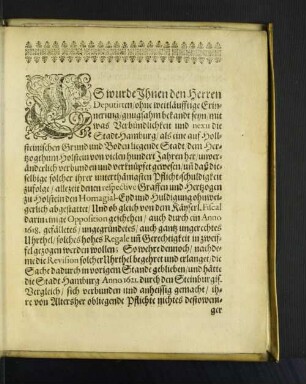 ES wurde Ihnen den Herren
Deputirten / ohne weitläufftige Erin-
nerung / gnugsahm bekandt seyn / mit
was Verbündlichkeit und nexu die
Stadt Hamburg / als eine auf Holl-
steinischen Grund und Boden ligende Stadt / dem Her-
zogthum Holstein von vielen hundert Jahren her / unver-
änderlich verbunden und verknüpfet gewesen / uñ daß die-
selbige solcher ihrer unterthänigsten Pflicht-schuldigkeit
zufolge / allezeit denen respectivè Graffen und Hertzogen
zu Holstein den Homagial-Eyd und Huldigung ohnweg-
gerlich abgestattet; Und ob gleich von dem Kayserl. Fiscal
darin einige Opposition geschehen / auch durch ein Anno
1618. gefälletes / ungegründetes / auch gantz ungerechtes
Uhrthel / solches hohes Regale uñ Gerechtigkeit in zweif-
fel gezogen werden wollen; So wehret dennoch / nachde-
me die Revision solcher Uhrthel begehret und erlanget / die
Sache dadurch in vorigem Stande geblieben / und hätte
die Stadt Hamburg Anno 1621. durch den Steinburgis.
Vergleich / sich verbunden und anheissig gemacht / ih-
re von Altersher obliegende Pflichte nichtes destowen-
ger